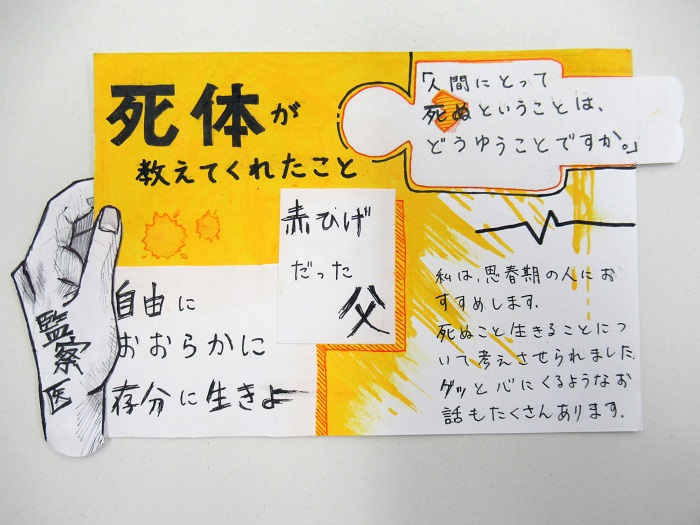 死体が
教えてくれたこと
「人間にとって
死ぬということは、
どうゆうことですか。」
赤ひげ
だった
父
監察医
自由に
おおらかに
存分に生きよ
私は、思春期の人にお
すすめします。
死ぬこと生きることにつ
いて考えさせられました。
グッと心にくるようなお
話もたくさんあります。